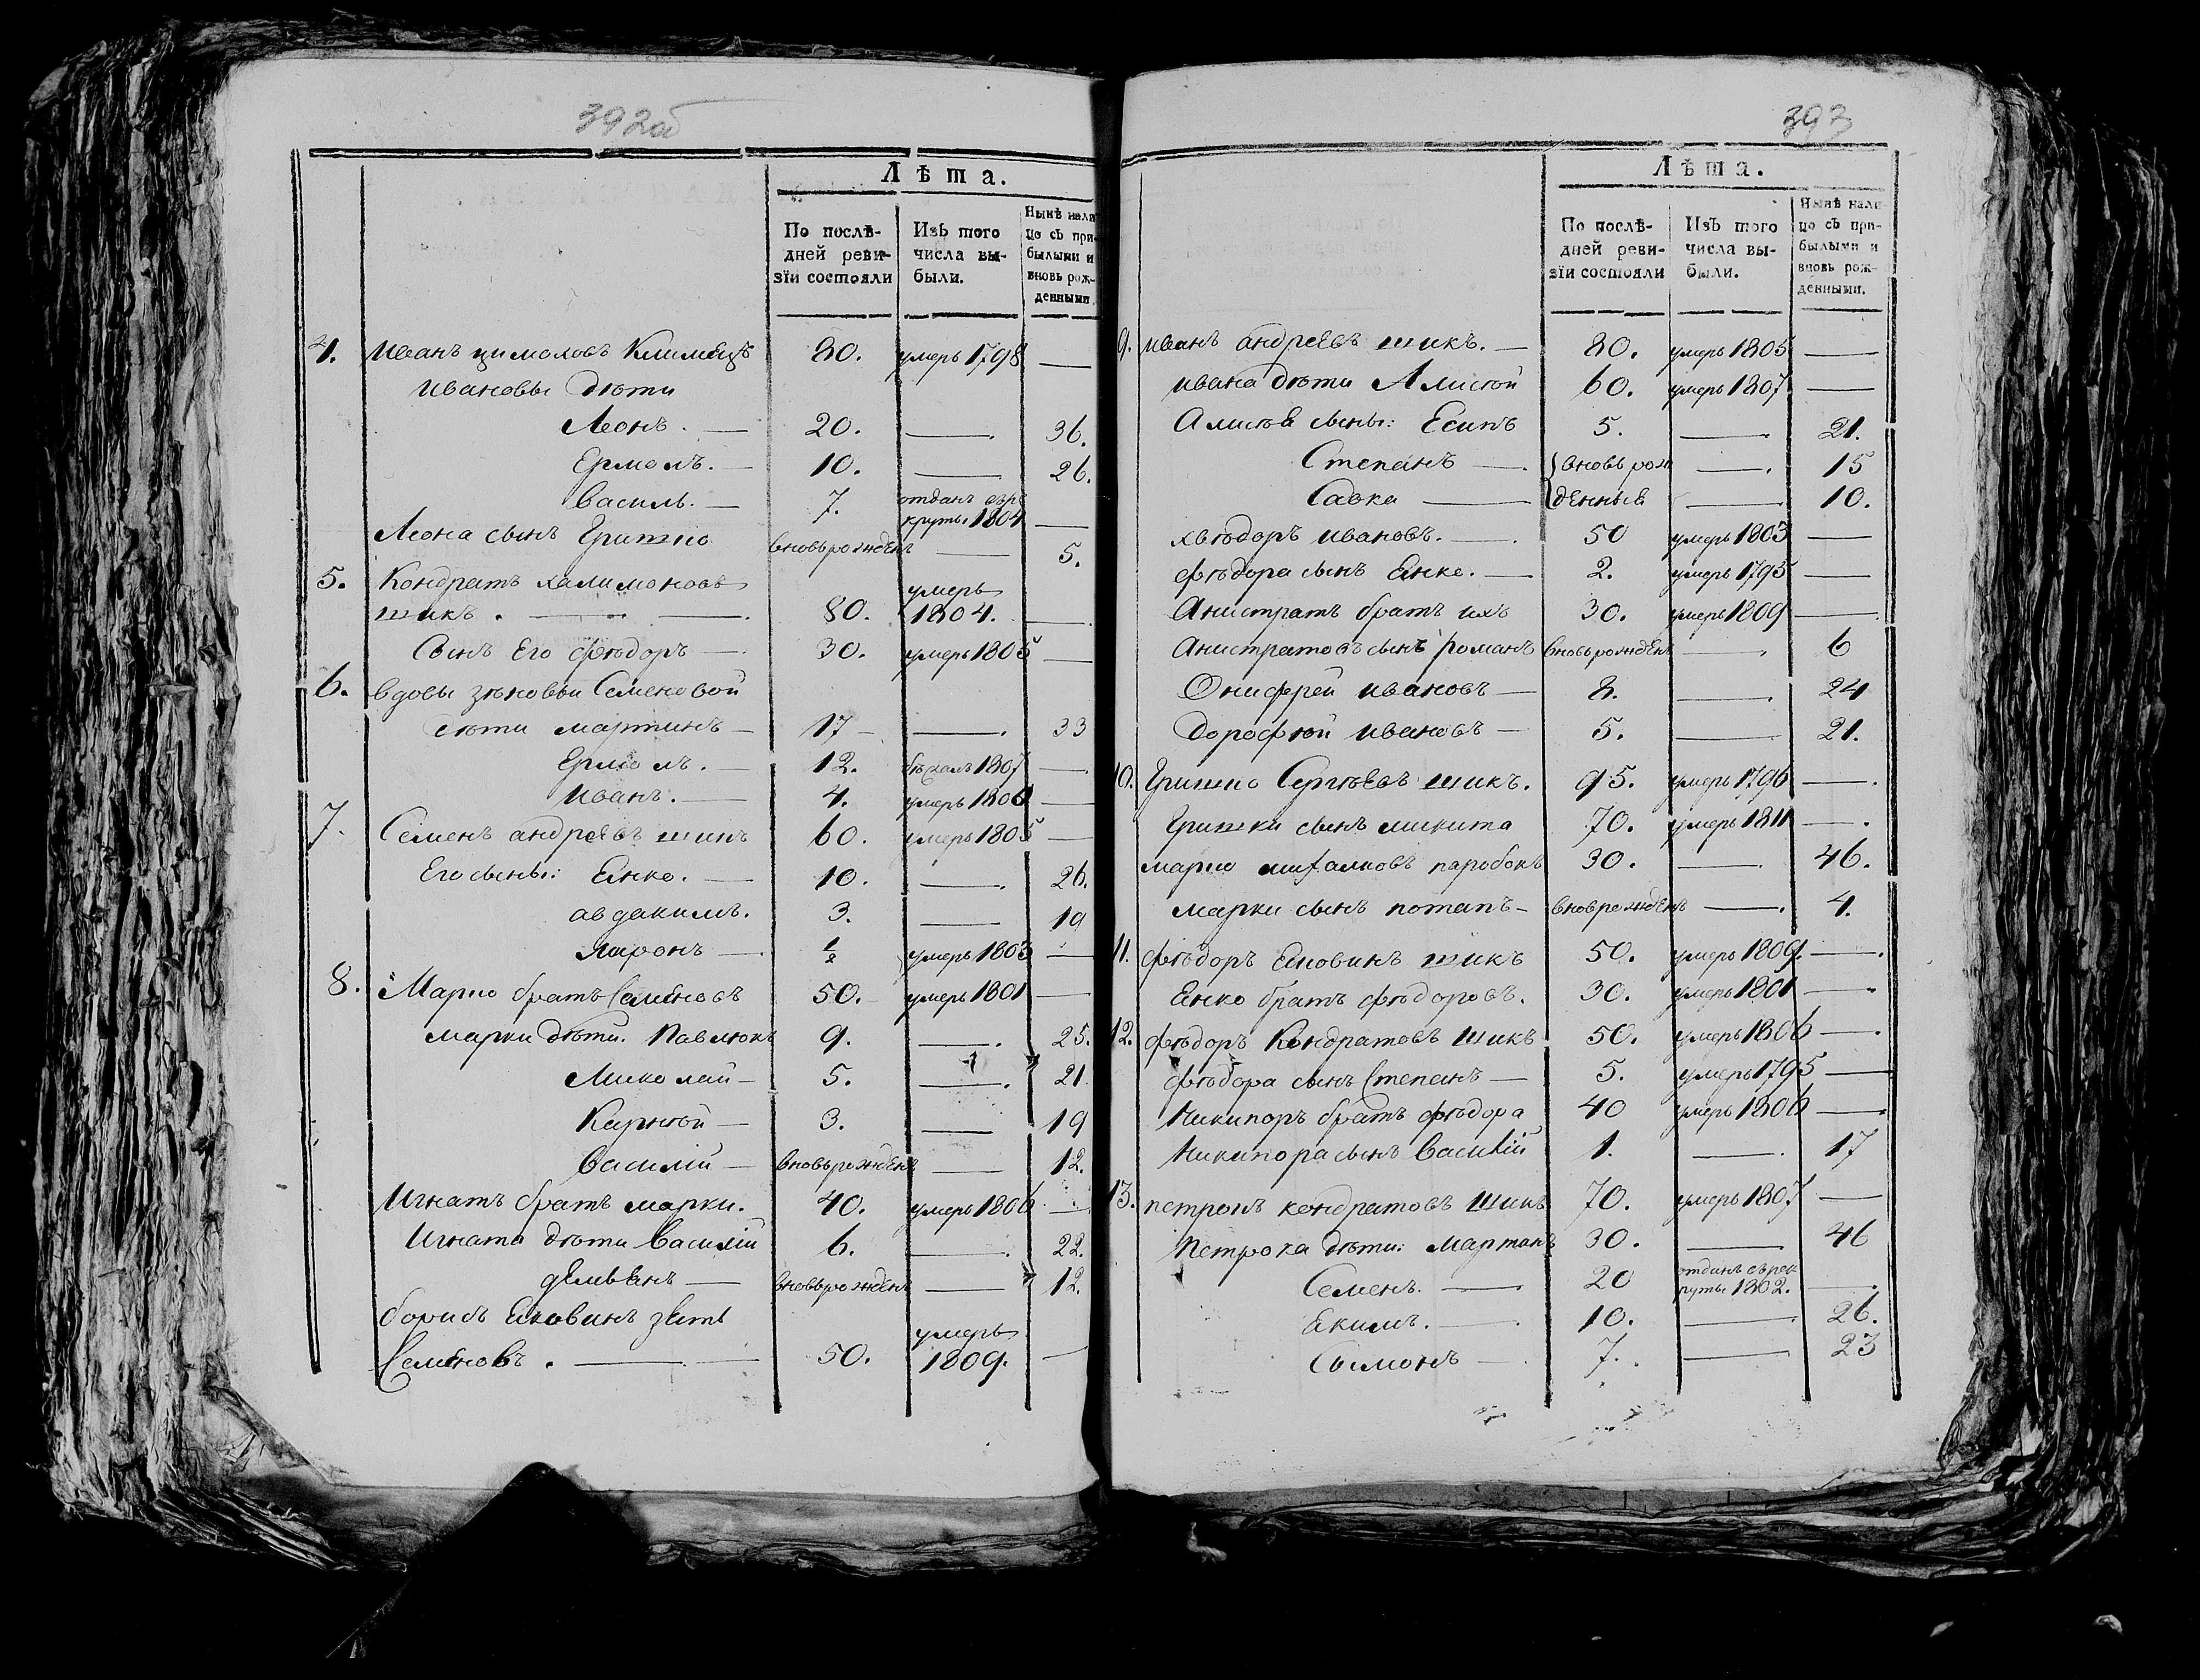 392об
Лѣта.
По послѣ-
дней реви-
зїи состояли
Изъ того
числа вы-
были.
Нынѣ нали
цо съ при-
былыми и
вновь рож-
денными.
4. Иванъ цимоховъ Климецъ 80. умеръ 1798 —
Ивановы дѣти
Леонъ. — 20. — 36.
Ермолъ. — 10. — 26.
Василь. — 7. отданъ
круты 1804 —
Леона сынъ Гришко вновьрожденъ — 5.
5. Кондратъ халимоновъ умеръ
шикъ. — 80. 1804. —
Сынъ Его фѣдоръ — 30. умеръ 1805 —
6. вдовы зѣновьи Семеновой
дѣти мартинъ — 17 — 33
Ермолъ. — 12. бѣжалъ 1807 —
Иванъ. — 4. умеръ 1806 —
7. Семенъ андреевъ шикъ 60. умеръ 1805 —
Его сыны: Енко. — 10. — 26.
авдакимъ. 3. — 19
Ларонъ — ½ умеръ 1803 —
8. Марко братъ Семеновъ 50. умеръ 1801 —
марки дѣти. Павлюкъ 9. — 25.
Миколай — 5. — 21
Карнѣй — 3. — 19
Василій — вновьрожденъ — 12.
Игнатъ братъ марки. 40. умеръ 1806 —
Игната дѣти Василій 6. — 22.
демьянъ — вновьрожденъ — 12.
борисъ Ековинъ зеть умеръ
Семеновъ. — 50. 1809. —
393
Лѣта.
По послѣ-
дней реви-
зїи состояли
Изъ того
числа вы-
были.
Нынѣ нали
цо съ при-
былыми и
вновь рож-
денными.
9. иванъ андреевъ шикъ. — 80. умеръ 1805 —
ивана дѣти Алисѣй 60. умеръ 1807 —
Алисѣя сыны: Есипъ 5. — 21.
Степанъ — вновь рож — 15
Савка — денные — 10.
хвѣдоръ ивановъ. — 50 умеръ 1803 —
фѣдора сынъ Енко. — 2. умеръ 1795 —
Анистратъ братъ ихъ 30. умеръ 1809 —
Анистратовъ сынъ романъ вновьрожденъ — 6
Онифрей ивановъ — 8. — 24
дорофѣй ивановъ — 5. — 21.
10. Гришко Сергѣевъ шикъ. 95. умеръ 1796 —
Гришки сынъ микита 70. умеръ 1811 —
марко михалковъ паробокъ 30. — 46.
марки сынъ потапъ — вноврожденъ — 4.
11. фѣдоръ Еновинъ шикъ 50. умеръ 1809. —
Енко братъ фѣдоровъ. 30. умеръ 1801 —
12. фѣдоръ Кондратовъ шикъ 50. умеръ 1806 —
фѣдора сынъ Степанъ — 5. умеръ 1795 —
Никипоръ братъ фѣдора 40 умеръ 1806 —
Никипора сынъ Василій 1. — 17
13. петрокъ кондратовъ шикъ 70. умеръ 1807 —
Петрока дѣти: мартинъ 30. — 46
Семенъ. — 20 отданъ въ рек
руты 1802. —
Екимъ. — 10. — 26.
Сымонъ — 7. — 23